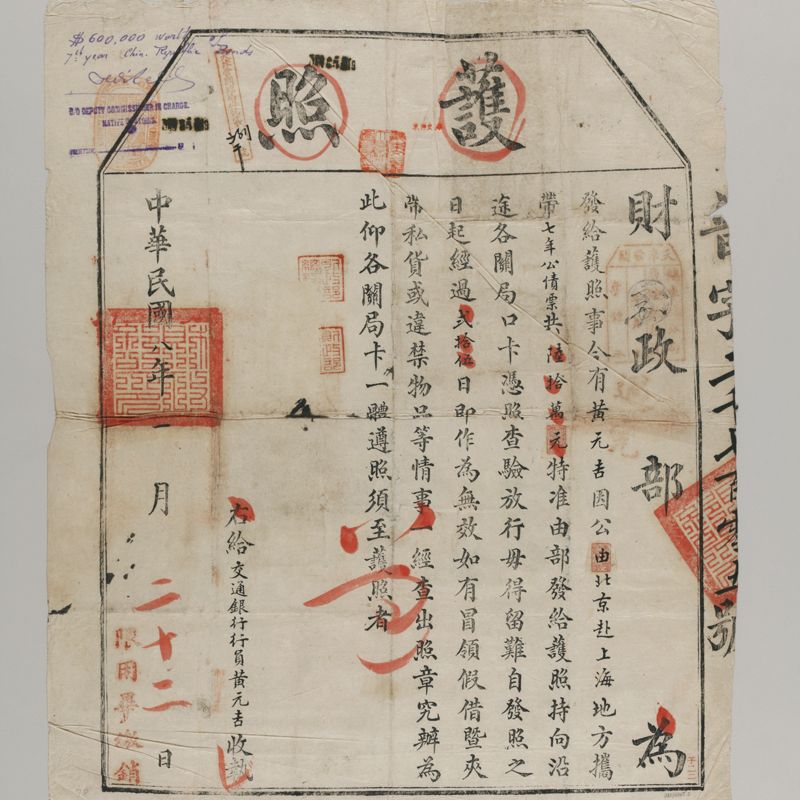 $600,000 worth of
7th year Chin. Republic Bonds
DEPUTY COMMISSIONER IN CHARGE.
護照
財政部為
發給護照事今有黃元吉因公由北京赴上海地方攜
帶七年公債票共陸拾萬元特准由部發給護照持向沿
途各關局口卡憑照查驗放行毋得留難自發照之
日起經過貳拾伍日即作為無效如有冒領假借暨夾
帶私貨或違禁物品等情事一經查出照章究辦為
此仰各關局卡一體遵照須至護照者
右給交通銀行行員黃元吉收執
中華民國八年一月二十二日
限用畢繳銷